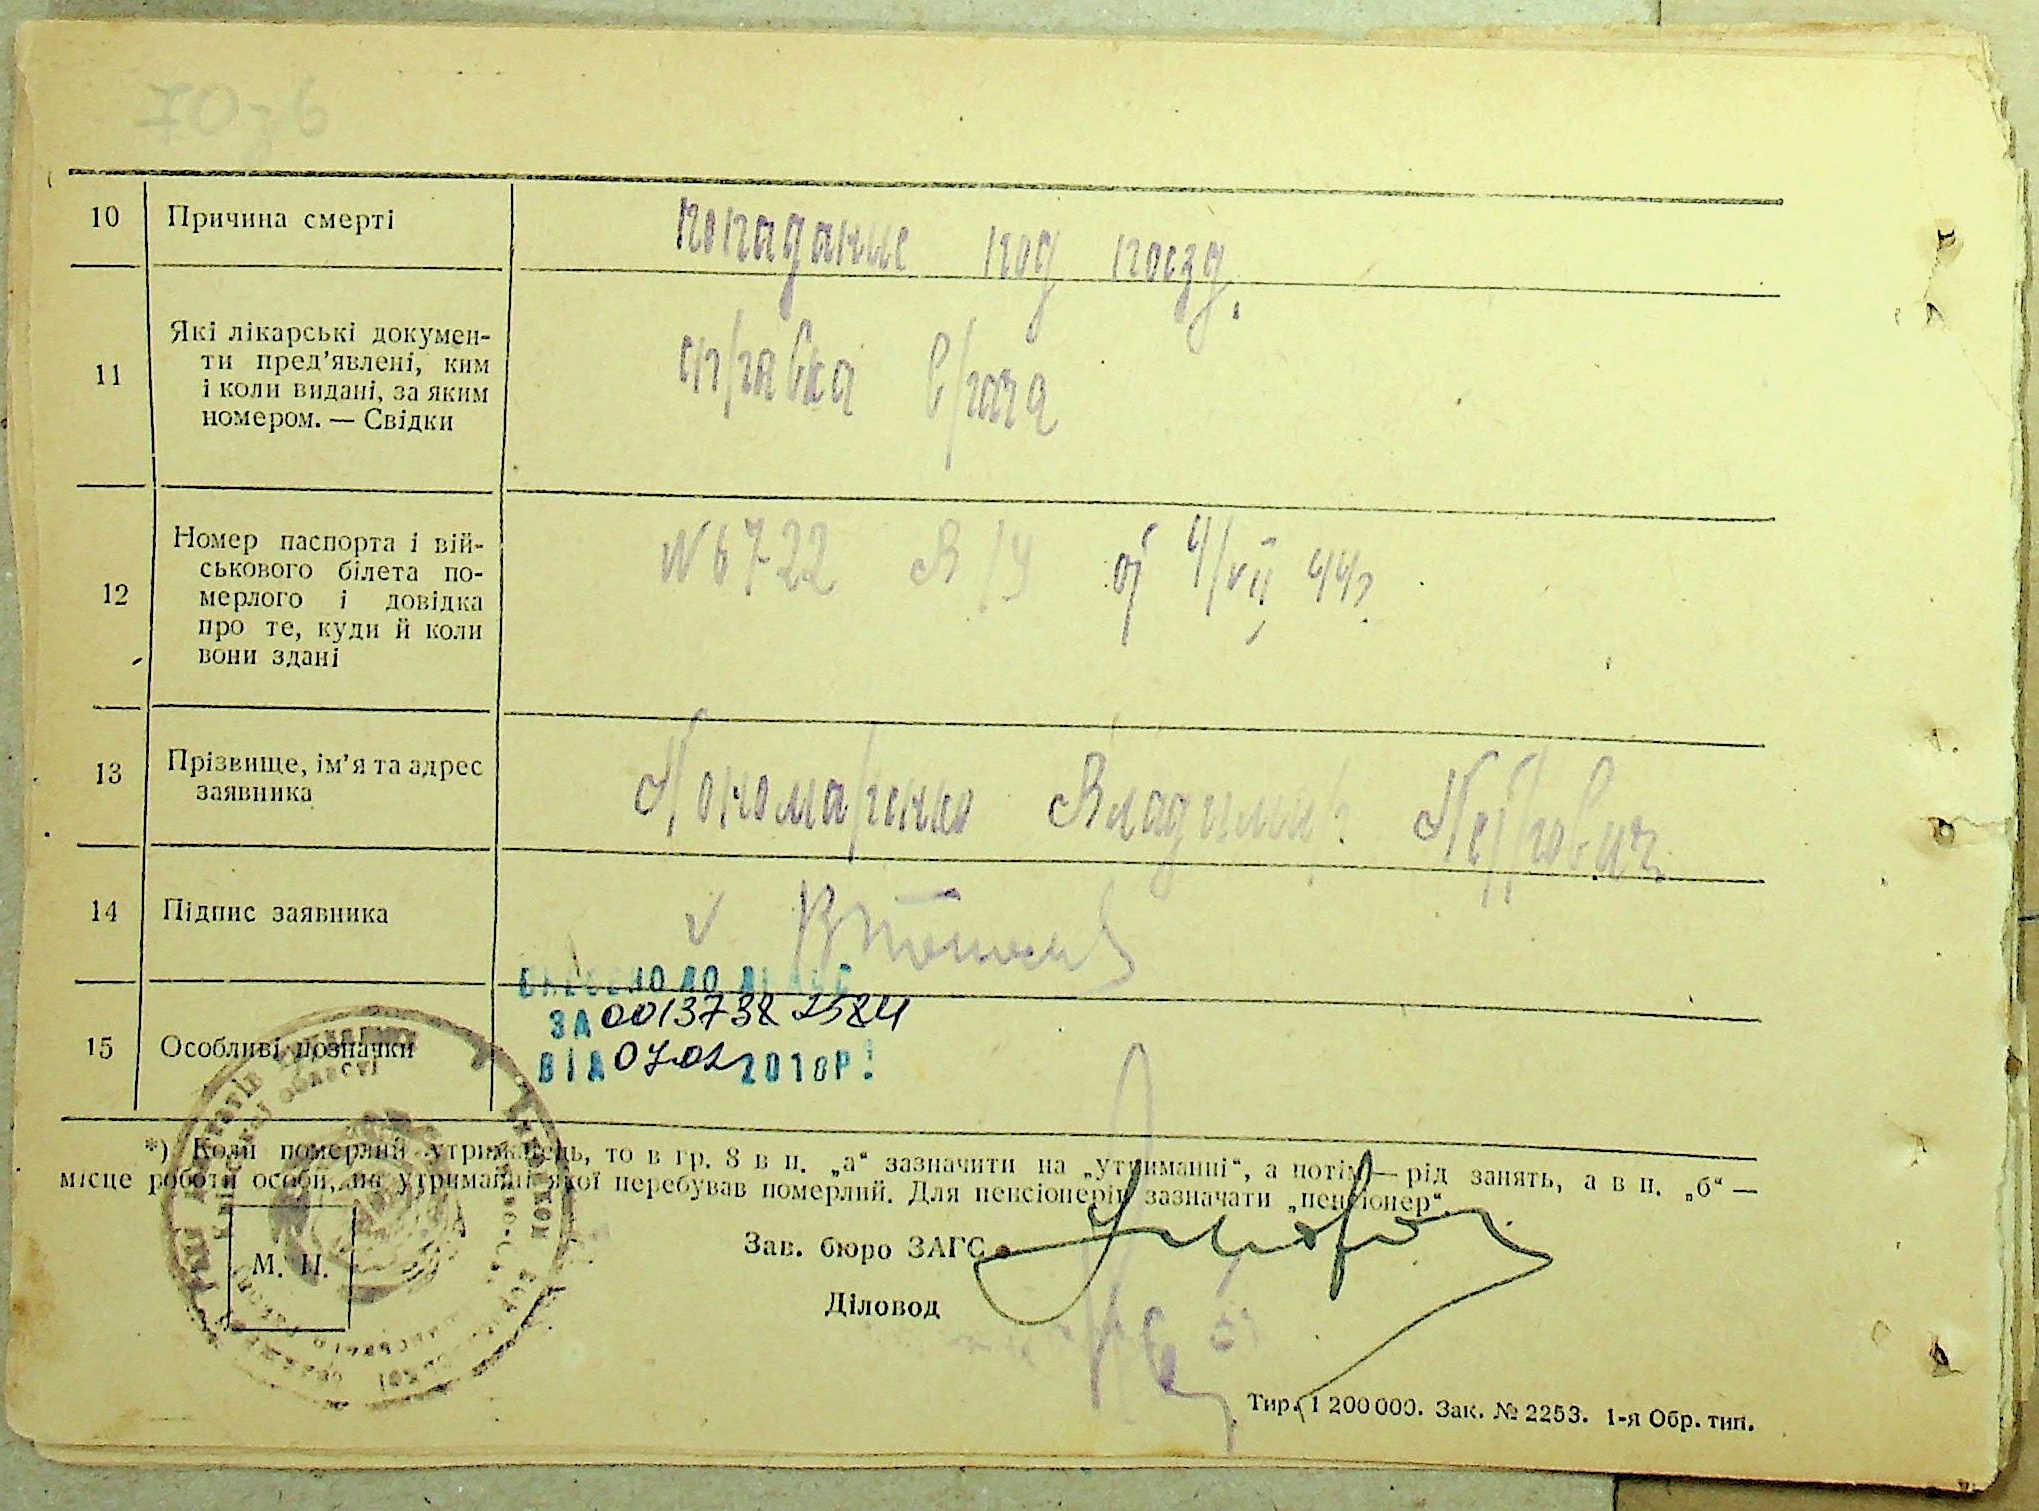 70-6
10 Причина смерті
попадание под поезд.
11 Які лікарські докумен-
ти пред'явлені, ким
і коли видані, за яким
номером. — Свідки
справка врача
12 Номер паспорта і вій-
ськового білета по-
мерлого і довідка
про те, куди й коли
вони здані
N 6722 В/У от 4/VII 44г.
13 Прізвище, ім'я та адрес
заявника
Пономаренко Владимир Петрович
14 Підпис заявника
15 Особливі позначки
ВНЕСЕНО ДО ДРАЦС
ЗА 00137382584
ВІД 07.02 2010Р.
*) Коли померлий утриманець, то в гр. 8 в п. „а“ зазначити на „утриманні“, а потім — рід занять, а в п. „б“ —
місце роботи особи, на утриманні якої перебував померлий. Для пенсіонерів зазначати „пенсіонер“.
Зав. бюро ЗАГС
М. П.
Діловод
Тир. 1 200 000. Зак. № 2253. 1-я Обр. тип.